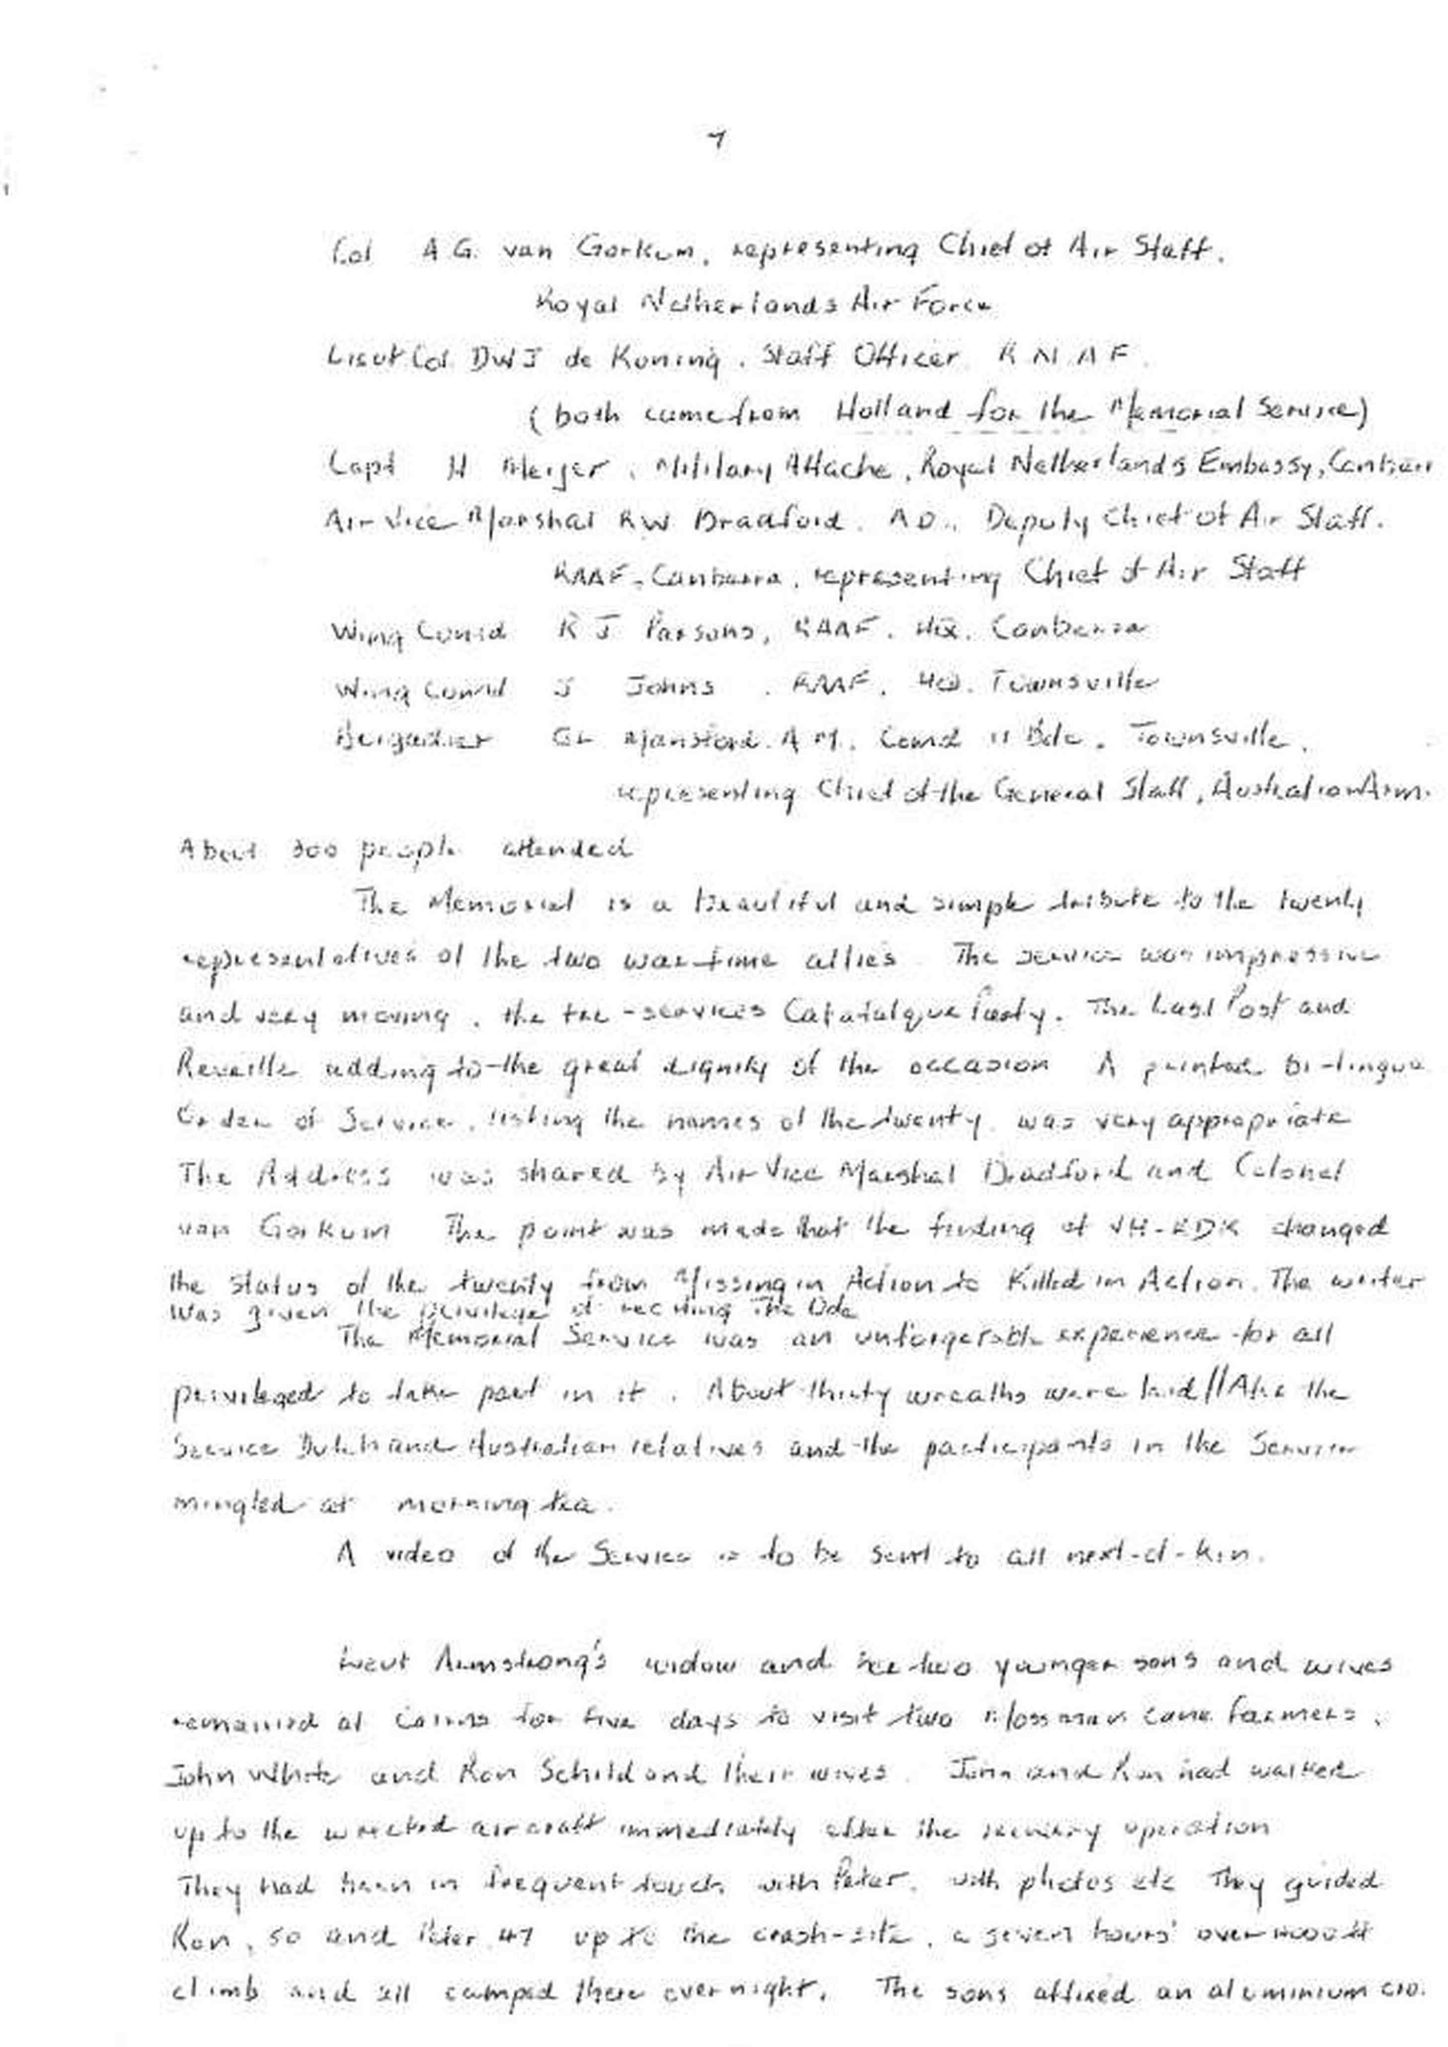 7
Col A.G. van Gorkum, representing Chief of Air Staff.
Royal Netherlands Air Force
Lieut Col. DWJ de Koning. Staff Officer R.N.A.F.
(both came from Holland for the Memorial Service)
Capt H Meijer, Military Attache, Royal Netherlands Embassy,
Air Vice Marshal RW Bradford. A.O., Deputy Chief of Air Staff.
RAAF, Canberra, representing Chief of Air Staff
Wing Comd R J Parsons, RAAF. HQ. Canberra
Wing Comd J Johns, RAAF. HQ. Townsville
Brigadier GL Mansford. A.M., Comd 11 Bde, Townsville,
representing Chief of the General Staff, Australian Arm
About 300 people attended
The Memorial is a beautiful and simple tribute to the twenty
representatives of the two war-time allies. The service was impressive
and very moving, the tri-services Catafalque Party. The Last Post and
Reveille adding to the great dignity of the occasion A printed bi-lingua
Order of Service, listing the names of the twenty, was very appropriate
The Address was shared by Air Vice Marshal Bradford and Colonel
van Gorkum The point was made that the finding of VH-RDK changed
the status of the twenty from Missing in Action to Killed in Action. The writer
was given the privilege of reciting The Ode
The Memorial Service was an unforgetable experience for all
privileged to take part in it. About thirty wreaths were laid // After the
Service Dutch and Australian relatives and the participants in the Service
mingled at morning tea.
A video of the Service is to be sent to all next-of-kin.
Lieut Armstrong's widow and her two younger sons and wives
remained at Cairns for five days to visit two Mossman cane farmers,
John White and Ron Schild and their wives. John and Ron had walked
up to the wrecked aircraft immediately after the recovery operation
They had been in frequent touch with Peter, with photos etc They guided
Ron, 50 and Peter 47 up to the crash-site, a seven hours' over 4000 ft
climb and all camped there overnight. The sons affixed an aluminium cro.